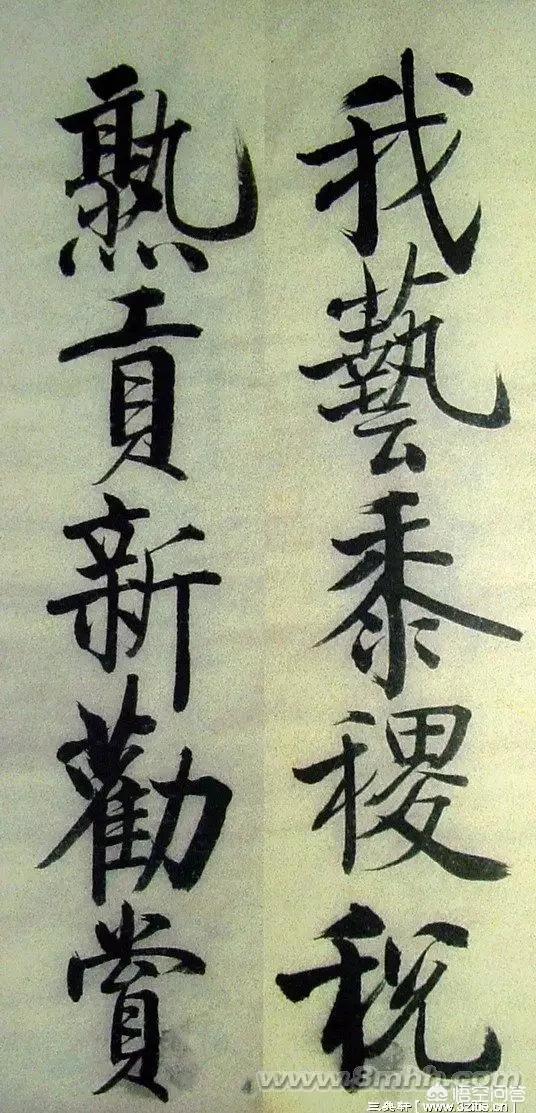 我藝黍稷稅
熟貢新勸賞
www.8mhh.com
悟空问答
三象轩 [www.3zitss.cn]